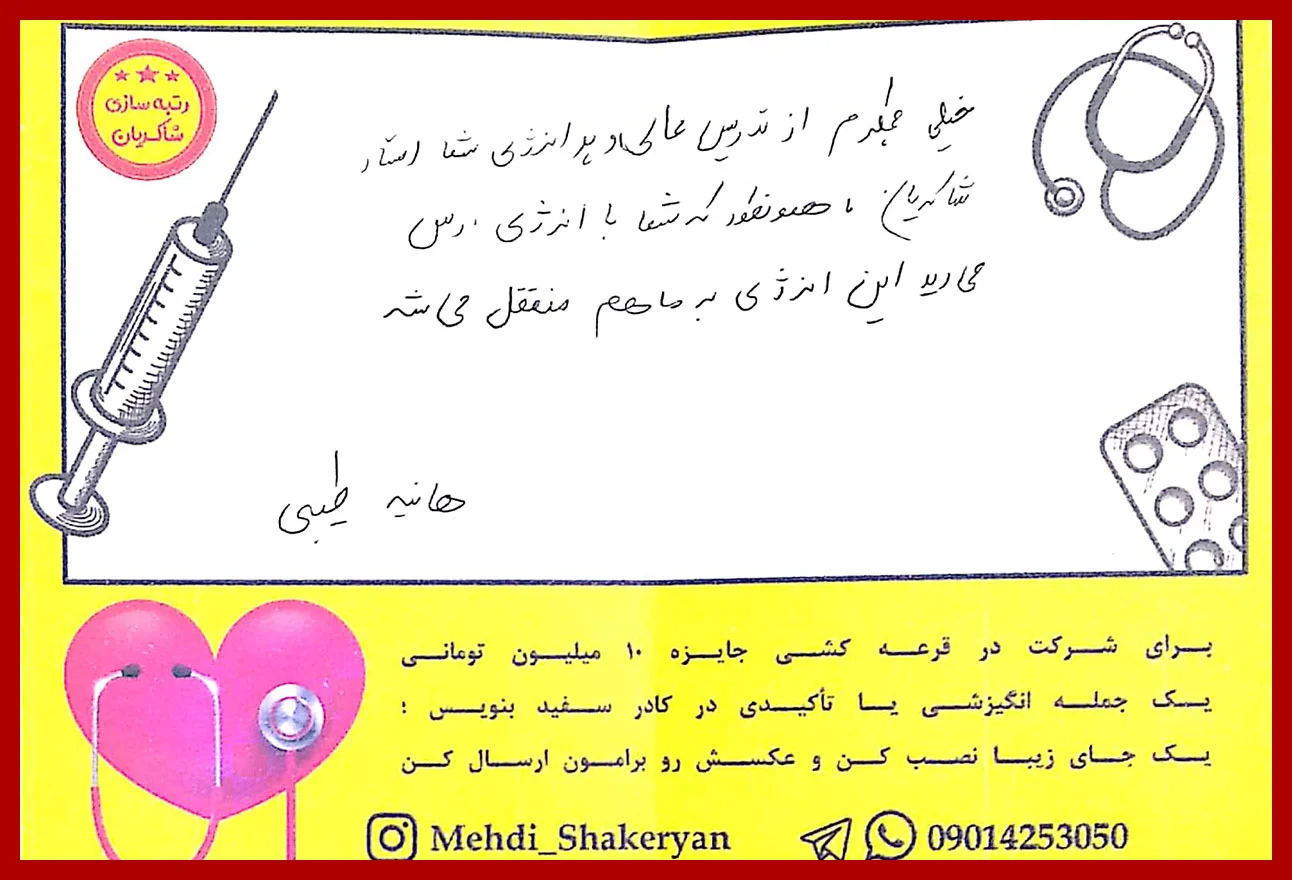 رتبه سازی
شاکریان
خیلی ممکرم از تدریس عالی و پر انرژی شما استاد
شاکریان همونطور که شما با انرژی درس
می دید این انرژی به ما هم منتقل می شه
هانیه طیبی
بـرای شـرکت در قرعه کشـی جایـزه ۱۰ میلیـون تومانـی
یـک جملـه انگیزشـی یـا تأکیـدی در کادر سـفید بنویس ؛
یـک جـای زیبـا نصـب کـن و عکسـش رو برامـون ارسـال کـن
Mehdi_Shakeryan
09014253050